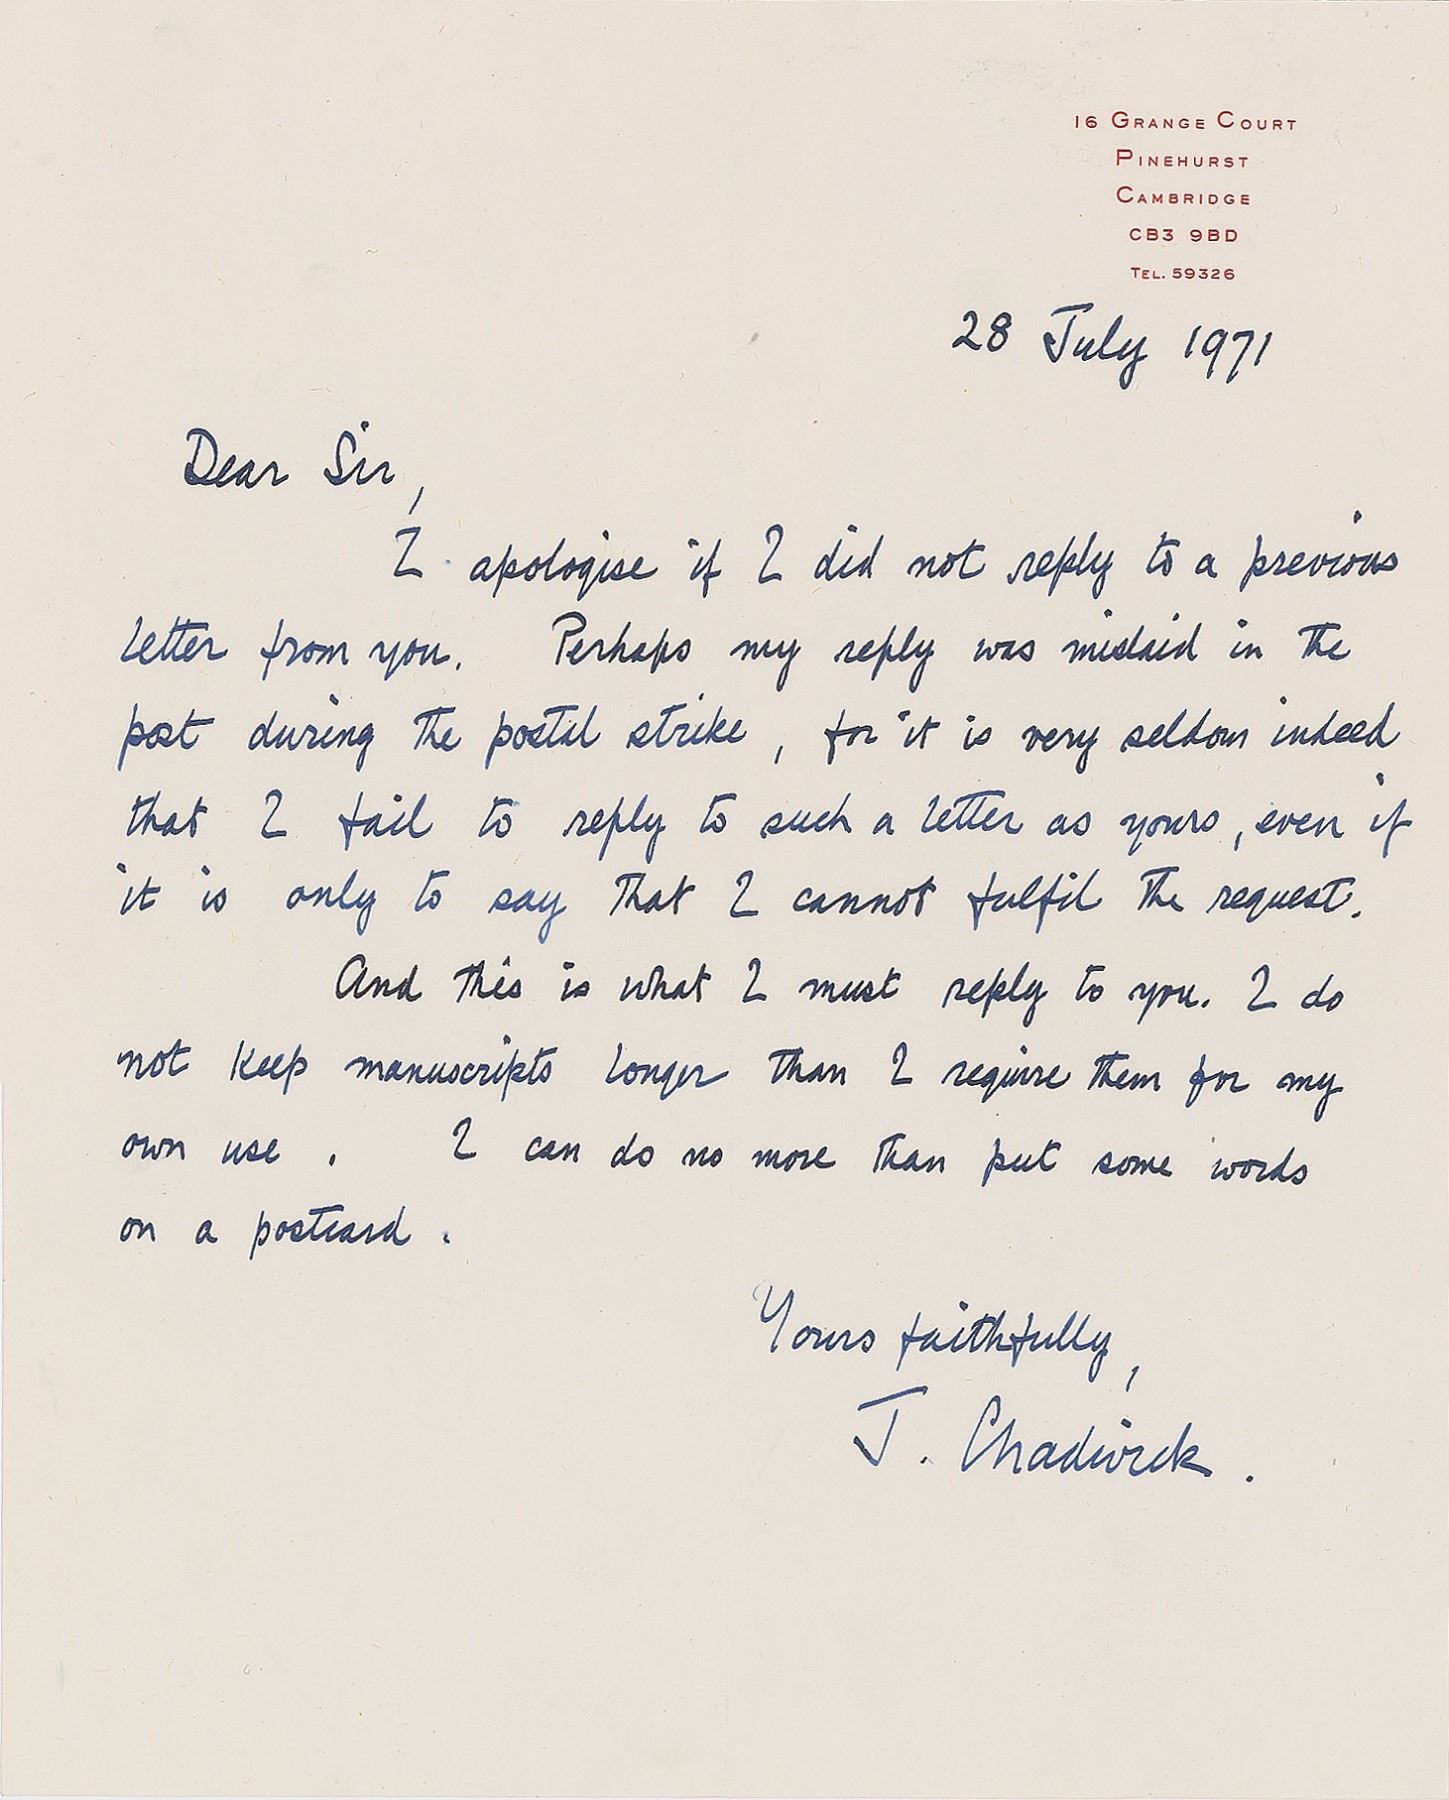 16 GRANGE COURT
PINEHURST
CAMBRIDGE
CB3 9BD
TEL. 59326
28 July 1971
Dear Sir,
I apologise if I did not reply to a previous
letter from you. Perhaps my reply was mislaid in the
post during the postal strike, for it is very seldom indeed
that I fail to reply to such a letter as yours, even if
it is only to say that I cannot fulfil the request.
And this is what I must reply to you. I do
not keep manuscripts longer than I require them for my
own use. I can do no more than put some words
on a postcard.
Yours faithfully,
J. Chadwick.